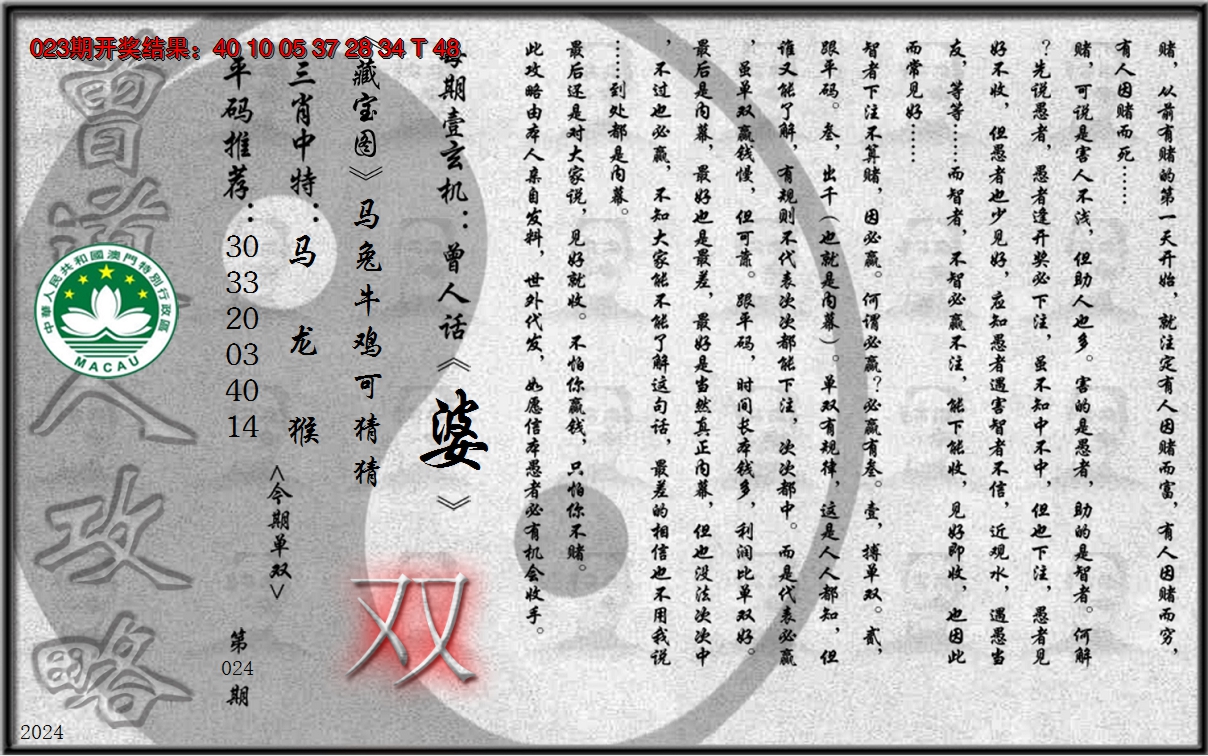 023期开奖结果：40 10 05 37 28 34 T 48
赌，从前有赌的第一天开始，就注定有人因赌而富，有人因赌而穷，
有人因赌而死……
赌，可说是害人不浅，但助人也多。害的是愚者，助的是智者。何解
？先说愚者，愚者逢开奖必下注，虽不知中不中，但也下注，愚者见
好不收，但愚者也少见好，应知愚者遇害智者不信，近观水，遇愚当
友，等等……而智者，不智必赢不注，能下能收，见好即收，也因此
而常见好……
智者下注不算赌，因必赢。何谓必赢？必赢有叁。壹，搏单双。贰，
跟平码。叁，出千（也就是内幕）。单双有规律，这是人人都知，但
谁又能了解，有规则不代表次次都能下注，次次都中。而是代表必赢
，虽单双赢钱慢，但可靠。跟平码，时间长本钱多，利润比单双好。
最后是内幕，最好也是最差，最好是当然真正内幕，但也没法次次中
，不过也必赢，不知大家能不能了解这句话，最差的相信也不用我说
……到处都是内幕。
最后还是对大家说，见好就收。不怕你赢钱，只怕你不赌。
此攻略由本人亲自发料，世外代发，如愿信本愚者必有机会收手。
每期壹玄机：曾人话《婆》
《藏宝图》马兔牛鸡可猜猜
双
三肖中特：马 龙 猴
<今期单双>
平码推荐：30 33 20 03 40 14
第024期
曾道人攻略
中華人民共和國澳門特別行政區
MACAU
2024